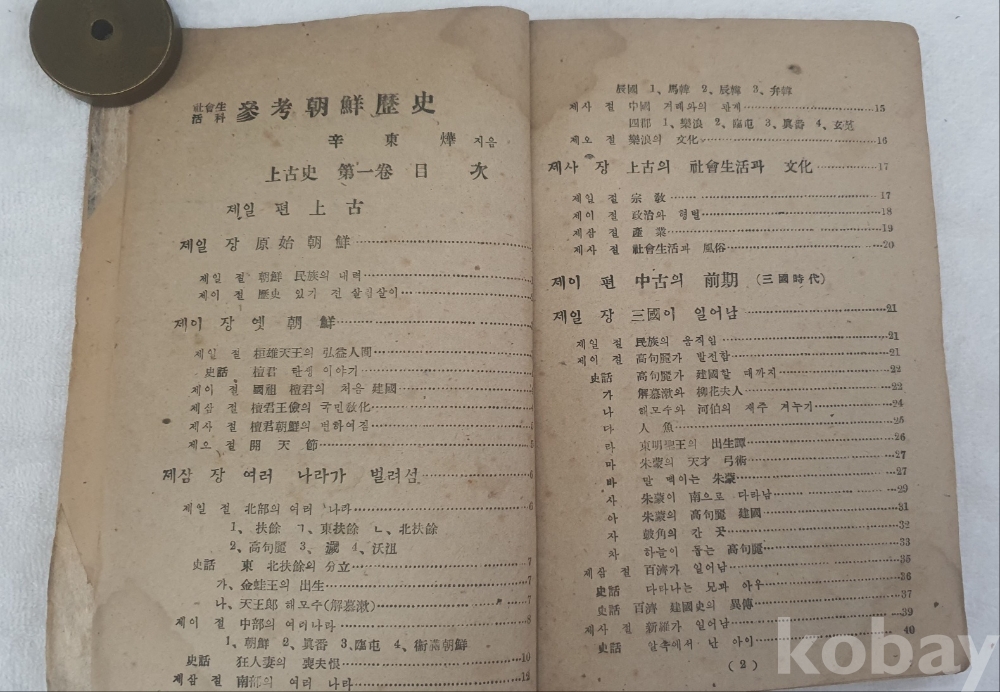 社會生活科 參考朝鮮歷史
辛東燁 지음
上古史 第一卷 目次
제일 편 上古
제일 장 原始朝鮮
제일 절 朝鮮 民族의 내력
제이 절 歷史 있기 전 살림살이
제이 장 옛 朝鮮
제일 절 桓雄天王의 弘益人間
史話 檀君 탄생 이야기
제이 절 國祖 檀君의 처음 建國
제삼 절 檀君王儉의 국민敎化
제사 절 檀君朝鮮의 변하여짐
제오 절 開天節
제삼 장 여러 나라가 벌려섬 6
제일 절 北部의 여러 나라 6
1、扶餘 ㄱ、東扶餘 ㄴ、北扶餘
2、高句麗 3、濊 4、沃沮
史話 東 北扶餘의 分立 7
가、金蛙王의 出生 7
나、天王郞 해모수(解慕漱) 7
제이 절 中部의 여러나라 8
1、朝鮮 2、眞番 3、臨屯 4、衛滿朝鮮
史話 狂人妻의 喪夫恨 10
제삼 절 南部의 여러 나라 12
辰國 1、馬韓 2、辰韓 3、弁韓
제사 절 中國 겨레와의 관계 15
四郡 1、樂浪 2、臨屯 3、眞番 4、玄菟
제오 절 樂浪의 文化 16
제사 장 上古의 社會生活과 文化 17
제일 절 宗敎 17
제이 절 政治와 형벌 18
제삼 절 產業 19
제사 절 社會生活과 風俗 20
제이 편 中古의 前期 (三國時代)
제일 장 三國이 일어남 21
제일 절 民族의 움직임 21
제이 절 高句麗가 발전함 21
史話 高句麗가 建國할 때까지 22
가 解慕漱와 柳花夫人 22
나 해모수와 河伯의 재주 겨누기 24
다 人魚 25
라 東明聖王의 出生譚 26
마 朱蒙의 天才 弓術 27
바 말 먹이는 朱蒙 27
사 朱蒙이 南으로 다라남 29
아 朱蒙의 高句麗 建國 31
자 鼓角의 간 곳 32
차 하늘이 돕는 高句麗 33
제삼 절 百濟가 일어남 35
史話 다라나는 兄과 아우 36
史話 百濟 建國史의 異傳 37
제사 절 新羅가 일어남 39
史話 알속에서 난 아이 40
( 2 )
kobay